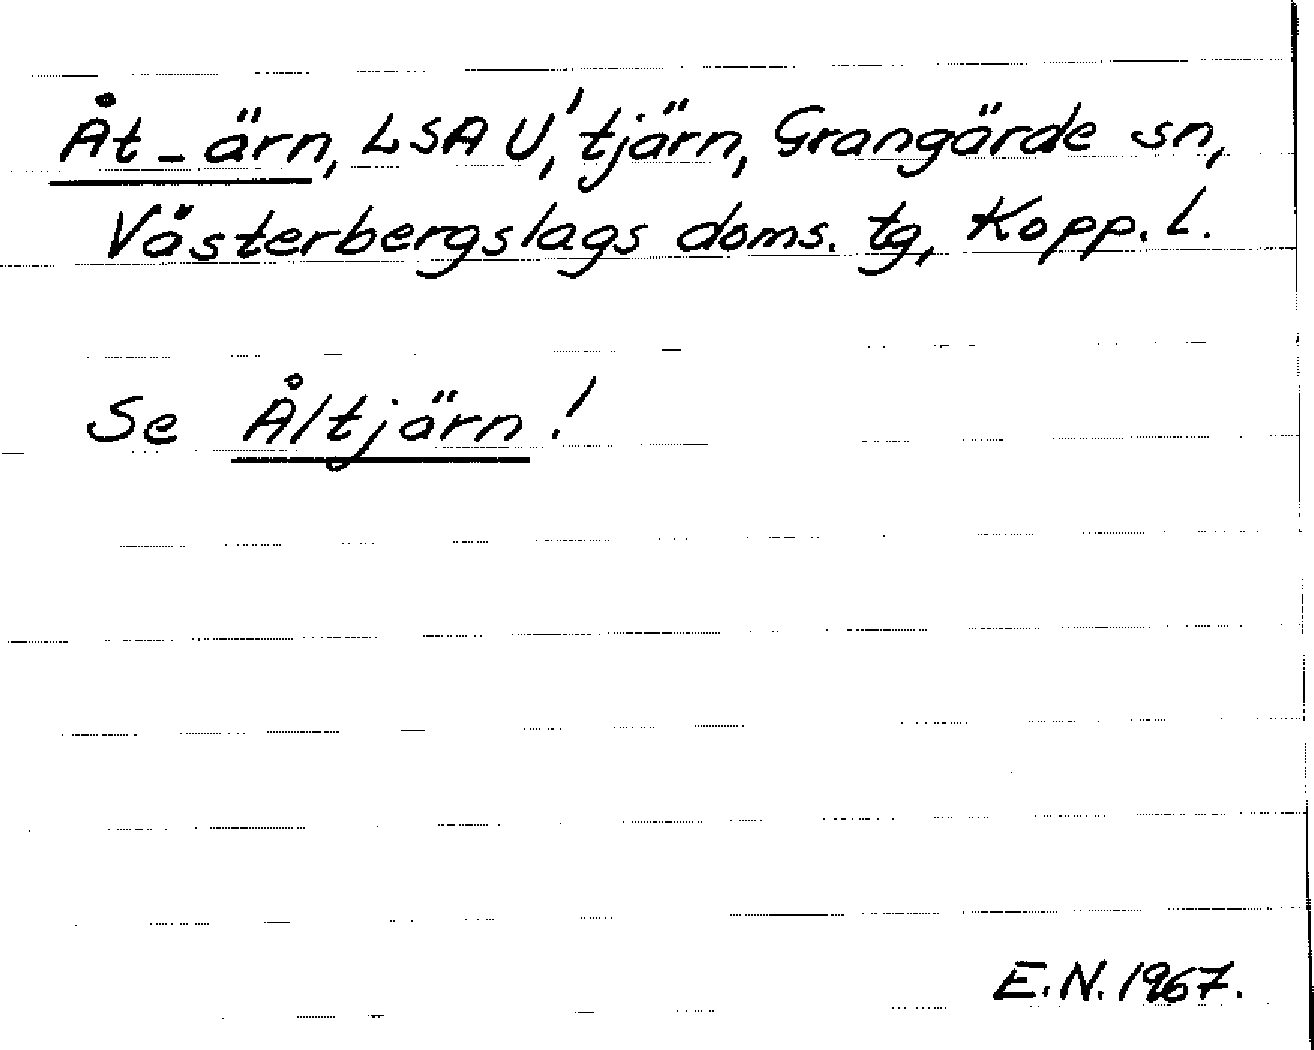 Åt-ärn, LSA U,' tjärn, Grangärde sn,
Västerbergslags doms. tg, Kopp. L.
Se Åltjärn!
E.N. 1967.